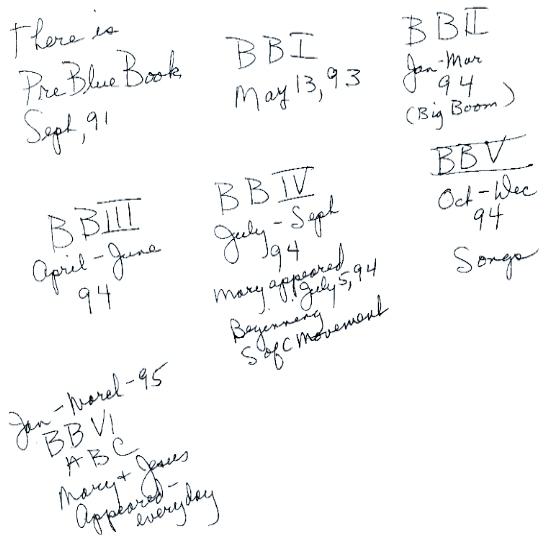 There is
Pre Blue Book
Sept, 91
BBI
May 13, 93
BBII
Jan-Mar
94
(Big Boom)
BBIII
April-June
94
BBIV
July-Sept
94
Mary appeared
July 5, 94
Beginning
S of C Movement
BBV
Oct-Dec
94
Songs
Jan-March-95
BBVI
ABC
Mary + Jesus
Appeared-
everyday